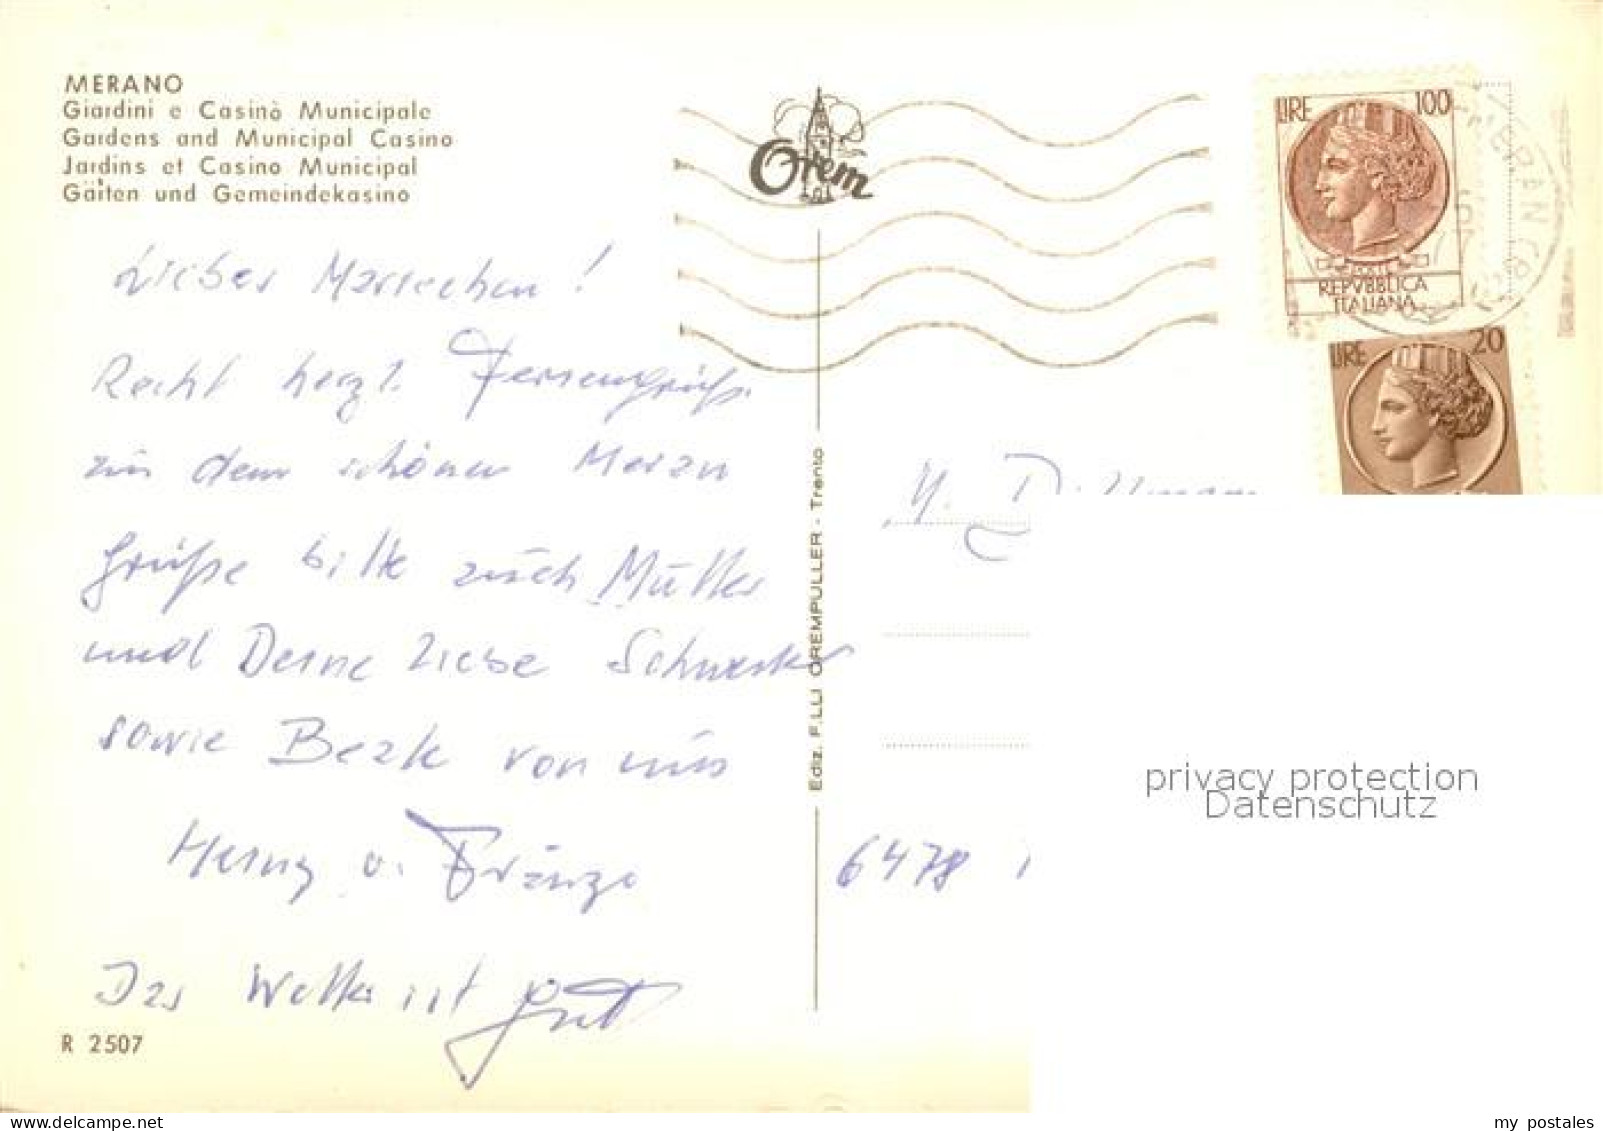 MERANO
Giardini e Casinò Municipale
Gardens and Municipal Casino
Jardins et Casino Municipal
Gärten und Gemeindekasino
Orem
LIRE 100
REPVBBLICA
ITALIANA
LIRE 20
Liebes Mariechen!
Recht herzl. Feriengrüße
aus dem schönen Meran
Grüße bitte auch Mutter
und Deine liebe Schwester
sowie von uns
Heinz u. Fränze
Das Wetter ist gut
R 2507
Ediz. F.LLI OREMPULLER - Trento
M.
6478
privacy protection
Datenschutz
my postales